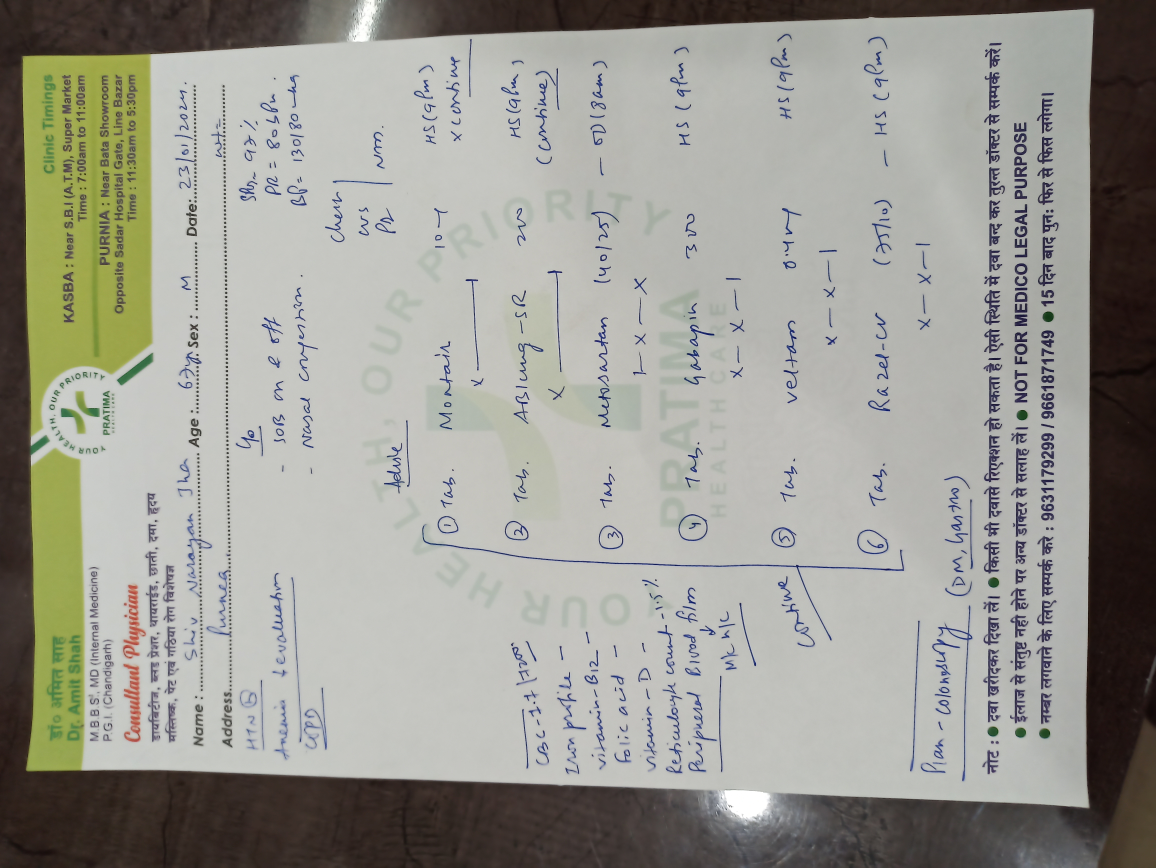 डॉ० अमित साह
Dr. Amit Shah
M.B.B.S., MD (Internal Medicine)
P.G.I. (Chandigarh)
Consultant Physician
डायबिटीज, ब्लड प्रेशर, थायराईड, छाती, दमा, हृदय
मस्तिष्क, पेट एवं गठिया रोग विशेषज्ञ
YOUR HEALTH, OUR PRIORITY
PRATIMA
HEALTHCARE
Clinic Timings
KASBA : Near S.B.I (A.T.M), Super Market
Time : 7:00am to 11:00am
PURNIA : Near Bata Showroom
Opposite Sadar Hospital Gate, Line Bazar
Time : 11:30am to 5:30pm
Name : Shiv Narayan Jha Age : 67yr Sex : M Date: 23/01/2024
Address Purnea wt=
HTN
Anemia evaluation
COPD
c/o
- SOB on & off
- Nasal congestion.
SpO2 97%
PR = 80 bpm.
BP = 130/80 mmHg
Chest
CVS
PA
Nm.
Advise
① Tab. Montair 10mg HS (9pm)
x x continue
② Tab. ABlung-SR 200 HS (9pm)
x (continue)
③ Tab. Metosartan (40/25) — OD (8am)
1 — x — x
④ Tab. Gabapin 300 HS (9pm)
x — x — 1
⑤ Tab. Veltam 0.4mg HS (9pm)
x — x — 1
⑥ Tab. Razel-CV (75/10) — HS (9pm)
x — x — 1
continue
CBC - 7.7/7200
Iron profile -
vitamin-B12 -
folic acid -
vitamin-D -
Reticulocyte count - 1.5%
Peripheral Blood film
M/c H/c
Plan - colonoscopy (DM, Gastro)
YOUR HEALTH, OUR PRIORITY
PRATIMA
HEALTH CARE
नोट : ● दवा खरीदकर दिखा लें। ● किसी भी दवासे रिएक्शन हो सकता है। ऐसी स्थिति में दवा बन्द कर तुरन्त डॉक्टर से सम्पर्क करें।
● ईलाज से संतुष्ट नही होने पर अन्य डॉक्टर से सलाह लें। ● NOT FOR MEDICO LEGAL PURPOSE
● नम्बर लगवाने के लिए सम्पर्क करे : 9631179299 / 9661871749 ● 15 दिन बाद पुनः फिर से फिस लगेगा।